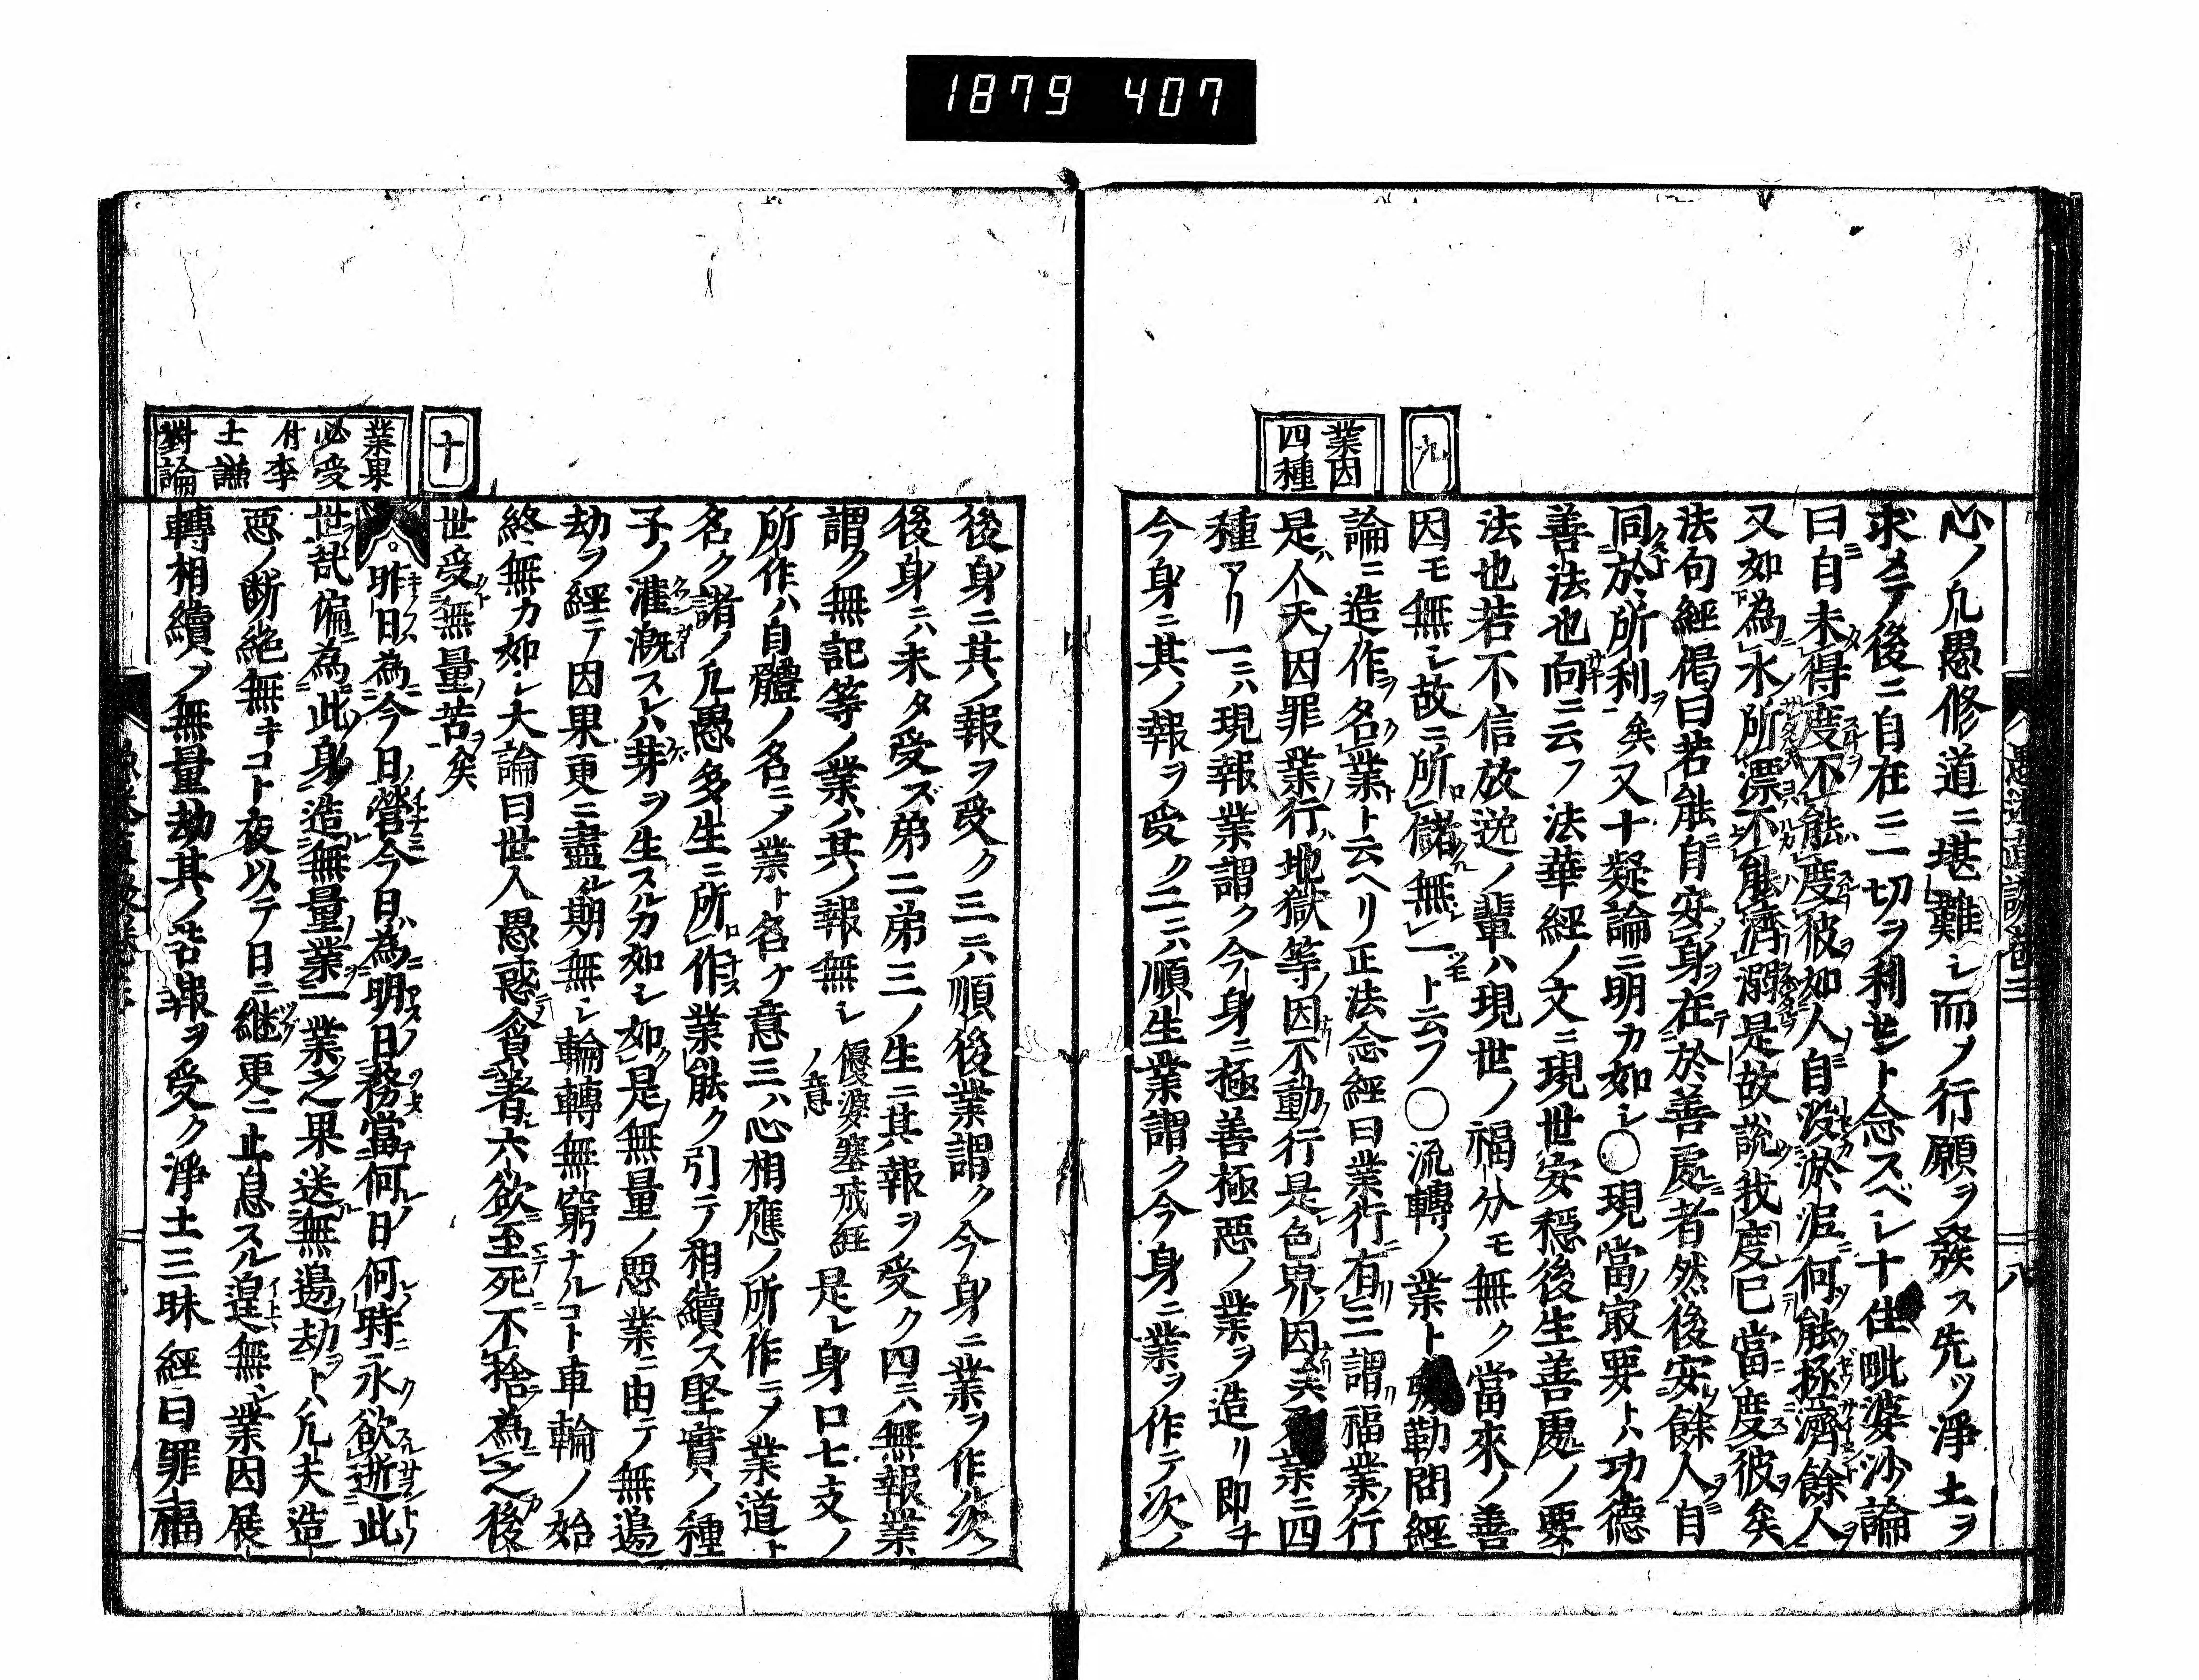 1879 407
九
業因
四種
心ノ凡愚修道ニ堪難シ而ノ行願ヲ發ス先ツ淨土ヲ
求メテ後ニ自在ニ一切ヲ利セント念スベシ十住毗婆沙論
曰自未得度不能度彼如人自沒淤泥何能拯濟餘人
又如為水所漂不能濟溺是故說我度已當度彼矣
法句經偈曰若能自安身在於善處者然後安餘人自
同於所利矣又十疑論ニ明カ如シ○現當ノ寂要トハ功德
善法也向ニ云フ法華經ノ文ニ現世安穩後生善處ノ要
法也若不信放逸ノ輩ハ現世ノ福分モ無ク當來ノ善
因モ無シ故ニ所儲無一ト云フ○流轉ノ業ト勒問經
論ニ造作ヲ名業ト云ヘリ正法念經曰業行有三謂福業行
是人天因罪業行地獄等因不動行是色界因業ニ四
種アリ一ニハ現報業謂ク今身ニ極善極惡ノ業ヲ造リ即チ
今身ニ其ノ報ヲ受ク二ニハ順生業謂ク今身ニ業ヲ作テ次ノ
十
業果
必受
付李
士謙
對論
後身ニ其ノ報ヲ受ク三ニハ順後業謂ク今身ニ業ヲ作次ノ
後身ニハ未タ受ズ弟二弟三ノ生ニ其報ヲ受ク四ニハ無報業
謂ク無記等ノ業ハ其ノ報無シ優婆塞戒經ノ意是レ身口七支ノ
所作ハ自體ノ名ニノ業ト名ケ意三ハ心相應ノ所作ニノ業道ト
名ク諸ノ凡愚多生ニ所作業能ク引テ相續ス堅實ノ種
子ノ灌漑スレハ芽ヲ生スルカ如シ如是無量ノ惡業ニ由テ無邊
劫ヲ經テ因果更ニ盡ル期無シ輪轉無窮ナルコト車輪ノ始
終無カ如シ大論曰世人愚惑貪著六欲至死不捨為之後
世受無量苦矣
昨日為今日營今日為明日務當何日何時永欲逝此
世哉偏為此身造無量業一業之果送無邊劫トハ凡夫造
惡ノ断絶無キコト夜以テ日ニ継更ニ止息スル遑無シ業因展
轉相續ノ無量劫其ノ苦報ヲ受ク淨土三昧經曰罪福